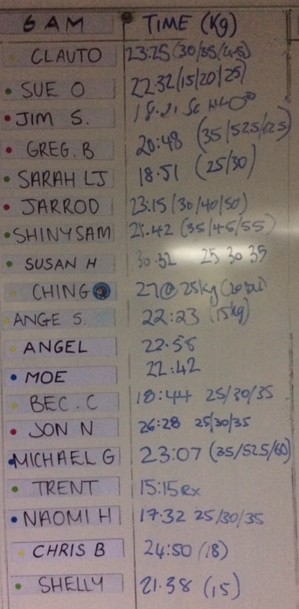 6 AM TIME (Kg)
CLAUTO 23:25 (30/35/45)
SUE O 22:32 (15/20/25)
JIM S. 18:21
GREG. B 20:48 (35/52.5/25)
SARAH LJ 18.51 (25/30)
JARROD 23:15 (30/40/50)
SHINYSAM 21.42 (35/45/55)
SUSAN H 30:32 25 30 35
CHING 27@ 25kg
ANGE S. 22:23 (15kg)
ANGEL 22:58
MOE 22:42
BEC. C 18:44 25/30/35
JON N 26:28 25/30/35
MICHAEL G 23:07 (35/52.5/60)
TRENT 15:15 Rx
NAOMI H 17:32 25/30/35
CHRIS B 24:50 (18)
SHELLY 21.38 (15)